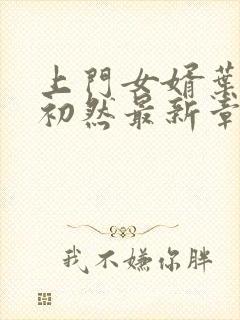 上門女婿葉
初然最新章
我不嫌你胖